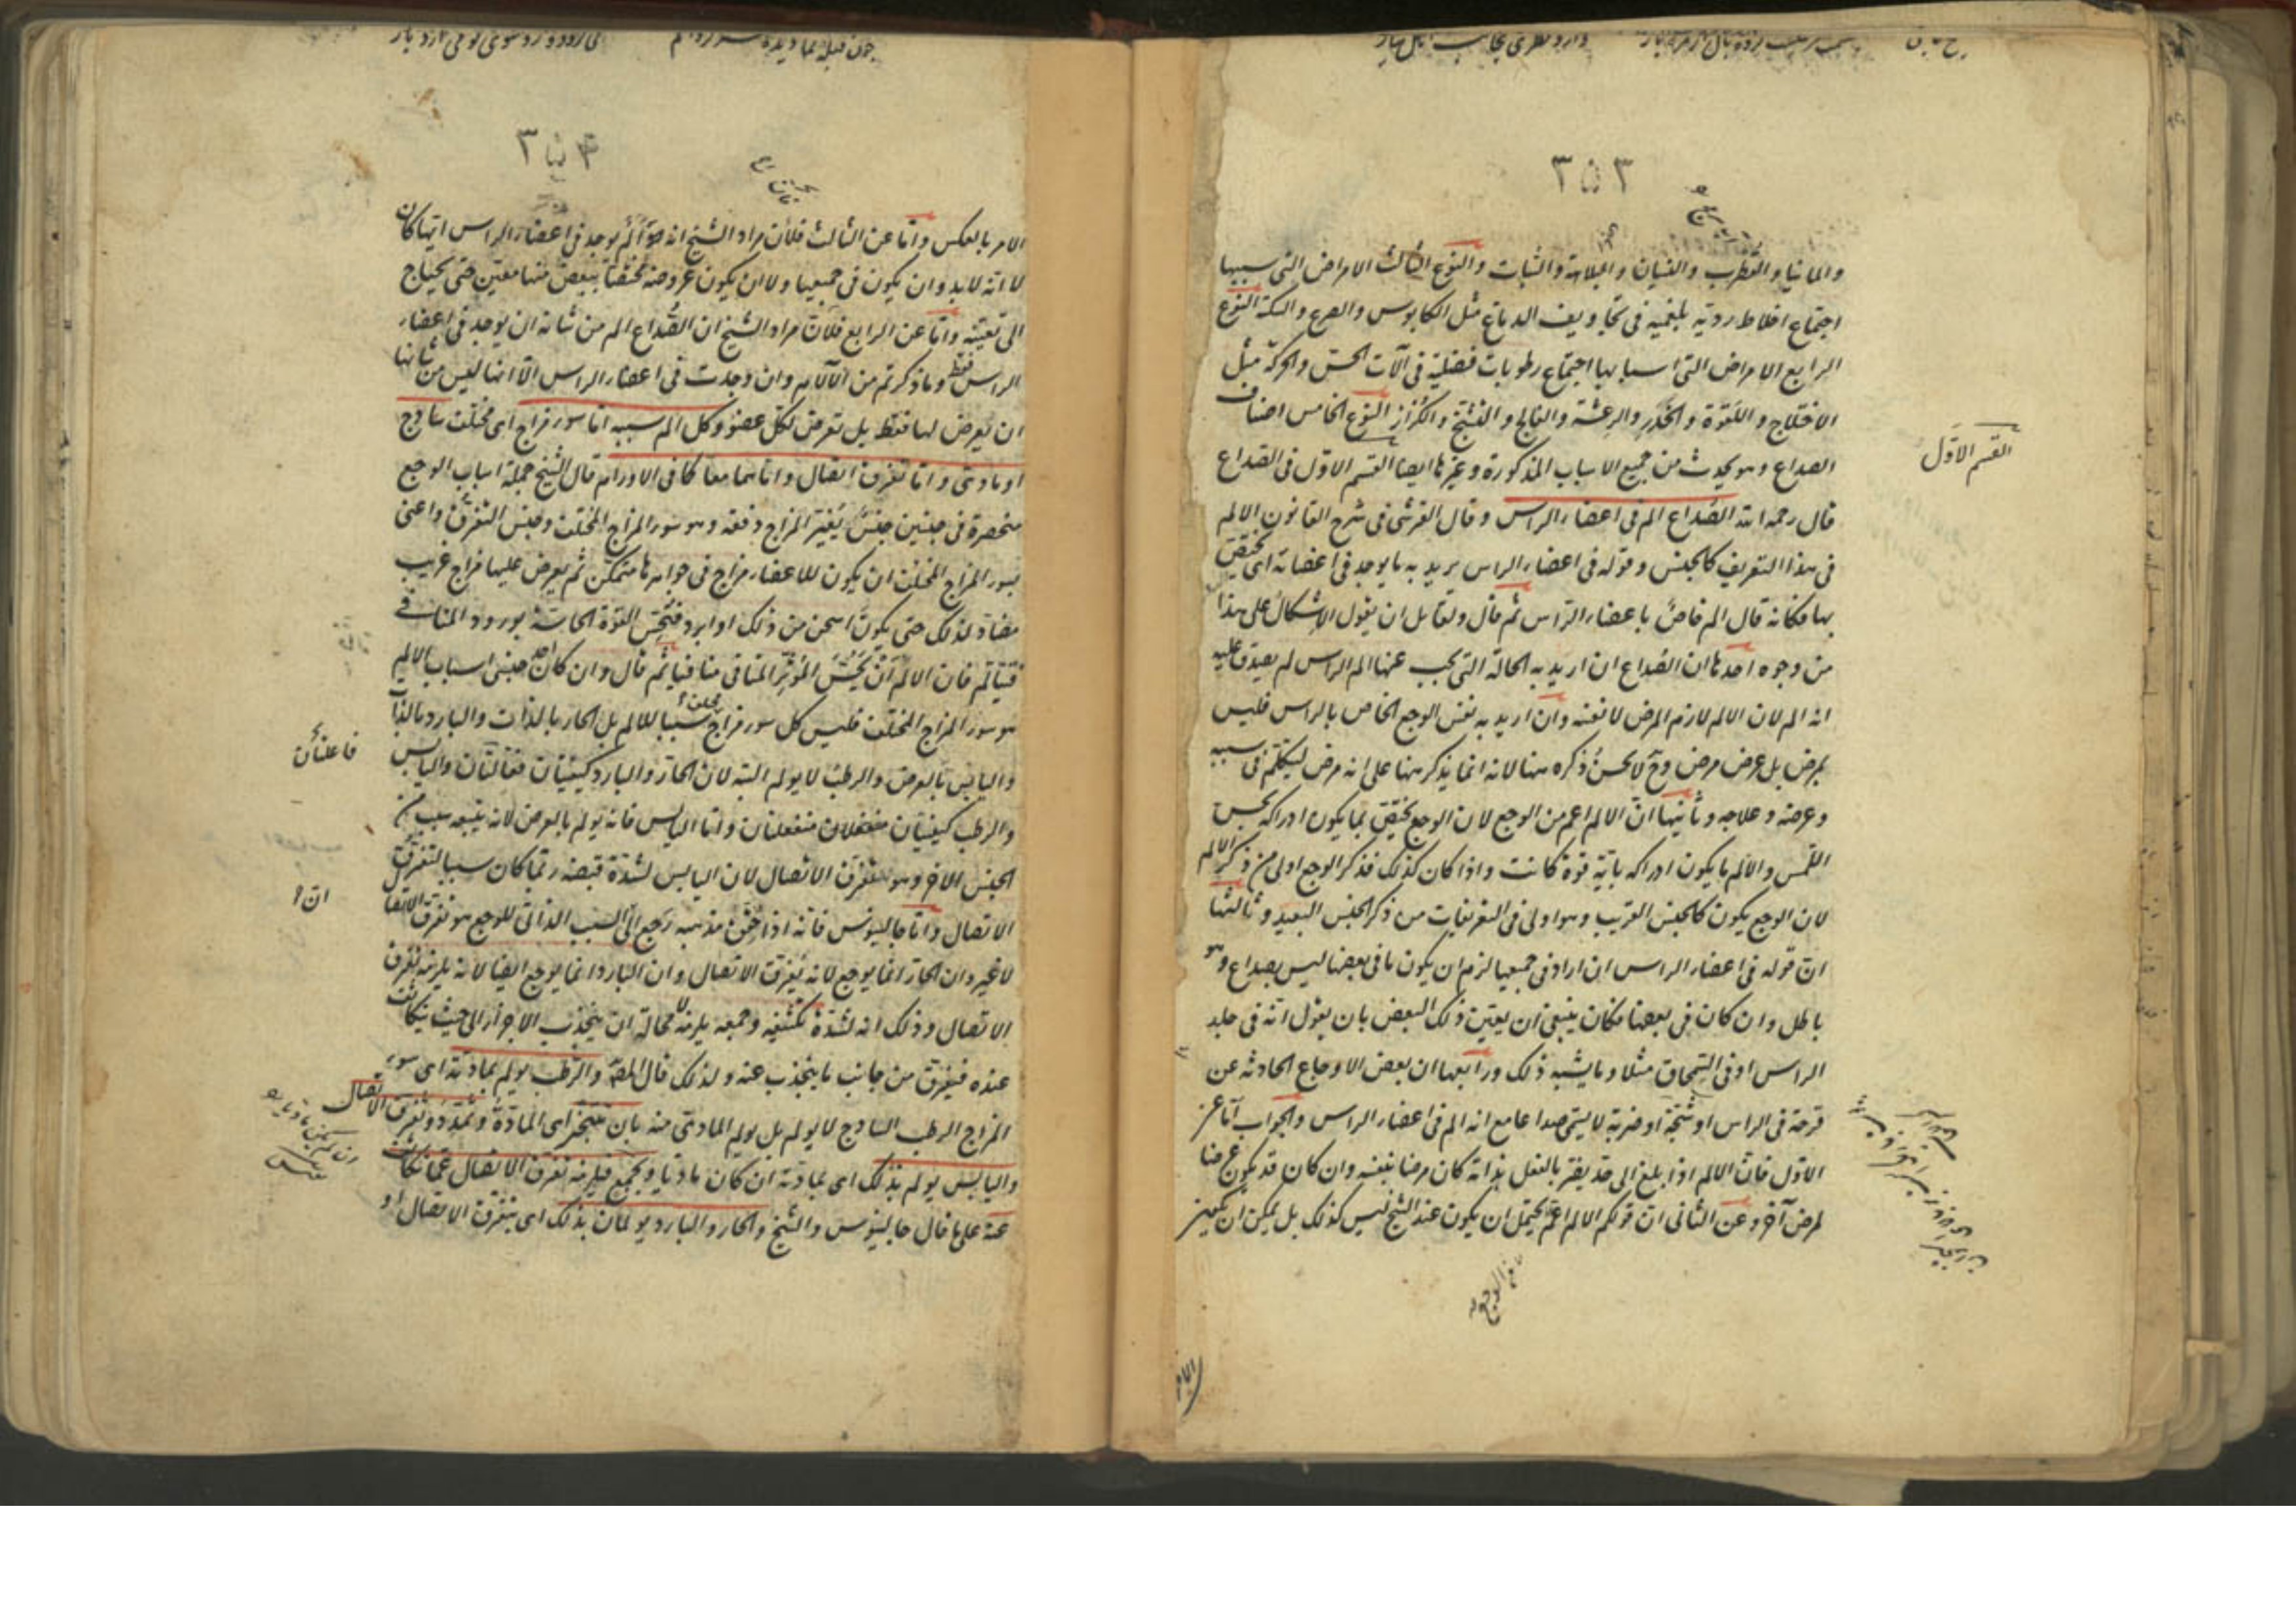 ٣٥٣
والمانيا والقطرب والنسيان والبلاهة والثبات والنوع الثالث الامراض التى سببها
اجتماع اخلاط ردية بلغمية فى تجاويف الدماغ مثل الكابوس والصرع والسكتة النوع
الرابع الامراض التى اسبابها اجتماع رطوبات فضلية فى آلات الحس والحركة مثل
الاختلاج واللقوة والخدر والرعشة والفالج والتشنج والكزاز النوع الخامس اصناف
الصداع وهو يحدث من جميع الاسباب المذكورة وغيرها ايضا القسم الاوّل فى الصداع
القسم الاوّل
قال رحمه الله الصُداع الم فى اعضاء الراس وقال القرشى فى شرح القانون الالم
فى هذا التعريف كالجنس وقوله فى اعضاء الراس يريد به ما يوجد فى اعضائه اى يختص
بها فكانه قال الم خاص باعضاء الراس ثم قال ولقائل ان يقول الاشكال على هذا
من وجوه احدها ان الصُداع ان اريد به الحالة التى يجب عنها الم الراس لم يصدق عليه
انه الم لان الالم لازم المرض لا نفسه وان اريد به نفس الوجع الخاص بالراس فليس
بمرض بل عرض مرض وح لا يحسن ذكره هنا لانه انما يذكر هنا على انه مرض ليتكلم فى سببه
وعرضه وعلاجه وثانيها انّ الالم اعم من الوجع لان الوجع يختص بما يكون ادراكه بحس
اللمس والالم ما يكون ادراكه باية قوة كانت واذا كان كذلك فذكر الوجع اولى من ذكر الالم
لان الوجع يكون كالجنس القريب وهو اولى فى التعريفات من ذكر الجنس البعيد وثالثها
ان قوله فى اعضاء الراس ان اراد فى جميعها لزم ان يكون ما فى بعضها ليس بصداع وهو
باطل وان كان فى بعضها فكان ينبغى ان يعيّن ذلك البعض بان يقول انه فى جلد
الراس او فى السمحاق مثلا وما يشبه ذلك ورابعها ان بعض الاوجاع الحادثه عن
قرحة فى الراس او شجّة او ضربة لا يسمى صداعا مع انه الم فى اعضاء الراس والجواب اما عن
الاوّل فانّ الالم اذا بلغ الى حد يضر بالفعل بذاته كان مرضا بنفسه وان كان قد يكون عرضا
لمرض آخر وعن الثانى ان قولكم الالم اعم يحتمل ان يكون عند الشيخ ليس كذلك بل يمكن ان يكون
٣٥٤
الامر بالعكس واما عن الثالث فلان مراد الشيخ انه هو الم يوجد فى اعضاء الراس ايّها كان
لا انه لابد وان يكون فى جميعها ولا ان يكون عروضه مختصّا ببعض منها معيّن حتى يحتاج
الى تعيينه واما عن الرابع فلان مراد الشيخ ان الصُداع الم من شانه ان يوجد فى اعضاء
الراس فقط وما ذكرتم من الآلام وان وجدت فى اعضاء الراس الّا انها ليس من شانها
ان يعرض لها فقط بل تعرض لكل عضو وكل الم سببه اما سوء مزاج اى مختلف ساذج
او مادى واما تفرق اتصال واما هما معا كما فى الاورام قال الشيخ جملة اسباب الوجع
منحصرة فى جنسين جنس يغير المزاج دفعة وهو سوء المزاج المختلف وجنس التفرق واعنى
بسوء المزاج المختلف ان يكون للاعضاء مزاج فى جواهرها متمكن ثم يعرض عليها مزاج غريب
مضادّ لذلك حتى يكون اسخن من ذلك او ابرد فتحس القوة الحاسّة بورود المنافى
فيتالم فان الالم ان يُحَسَّ المؤثر المنافى منافيا ثم قال وان كان احد جنسى اسباب الالم
هو سوء المزاج المختلف فليس كل سوء مزاج مختلف سببا للالم بل الحار بالذات والبارد بالذات
واليابس بالعرض والرطب لا يولم البتة لان الحار والبارد كيفيتان فعالتان واليابس
والرطب كيفيتان منفعلتان واما اليابس فانه يولم بالعرض لانه يتبعه سبب من
الجنس الاخر وهو تفرق الاتصال لان اليابس لشدّة قبضه ربما كان سببا لتفرق
الاتصال واما جالينوس فانه اذا حقق مذهبه رجع الى السبب الذاتى للوجع هو تفرق الاتصا
لا غير وان الحار انما يوجع لانه يفرق الاتصال وان البارد انما يوجع ايضا لانه يلزمه تفرق
الاتصال وذلك انه لشدّة تكثيفه وجمعه يلزمه لا محالة ان ينجذب الاجزاء الى حيث يتكاثف
عنده فيفرق من جانب ما ينجذب عنه ولذلك قال المص والرطب يولم بمادته اى سوء
المزاج الرطب الساذج لا يولم بل يولم المادى منه بان يتبخر اى المادّة وتمدد وتفرق الاتصال
واليابس يولم بذلك اى بمادته ان كان ماديا ويجمع فيلزمه تفرق الاتصال عما تكاثف
عنه على ما قال جالينوس والشيخ والحار والبارد يولمان بذلك اى بتفرق الاتصال او